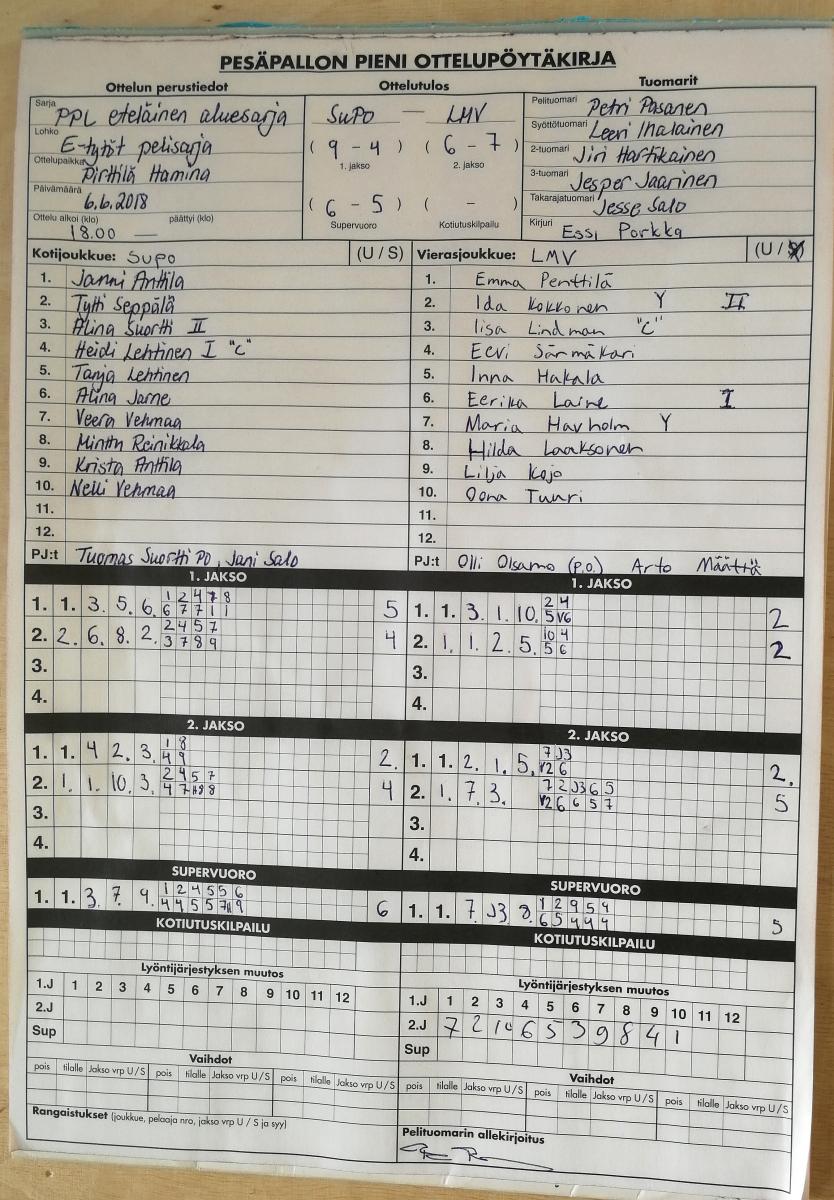 PESÄPALLON PIENI OTTELUPÖYTÄKIRJA
Ottelun perustiedot Ottelutulos Tuomarit
Sarja PPL eteläinen aluesarja
Lohko E-tytöt pelisarja
Ottelupaikka Pirttilä Hamina
Päivämäärä 6.6.2018
Ottelu alkoi (klo) päättyi (klo)
18.00 —
SuPo — LMV
(9 - 4) (6 - 7)
1. jakso 2. jakso
(6 - 5) ( - )
Supervuoro Kotiutuskilpailu
Pelituomari Petri Pasanen
Syöttötuomari Leevi Ihalainen
2-tuomari Jiri Hartikainen
3-tuomari Jesper Jaarinen
Takarajatuomari Jesse Salo
Kirjuri Essi Porkka
Kotijoukkue: SuPo (U / S)
1. Janni Anttila
2. Tytti Seppälä
3. Alina Suortti II
4. Heidi Lehtinen I "C"
5. Tanja Lehtinen
6. Alina Jarne
7. Veera Vehmaa
8. Minttu Reinikkala
9. Krista Anttila
10. Nelli Vehmaa
11.
12.
PJ:t Tuomas Suortti PO, Jani Salo
Vierasjoukkue: LMV (U / S)
1. Emma Penttilä
2. Ida Kokkonen Y II
3. Iisa Lindman "C"
4. Eevi Särmäkari
5. Inna Hakala
6. Eerika Laine I
7. Maria Havholm Y
8. Hilda Laaksonen
9. Lilja Kojo
10. Oona Tuuri
11.
12.
PJ:t Olli Olsamo (p.o.) Arto Määttä
1. JAKSO
1. 1. 3. 5. 6. 1 2 4 7 8 5
6 7 7 1 1
2. 2. 6. 8. 2. 2 4 5 7 4
3 7 8 9
3.
4.
1. JAKSO
1. 1. 3. 1. 10. 2 4 2
5 V6
2. 1. 1. 2. 5. 10 4 2
5 6
3.
4.
2. JAKSO
1. 1. 4 2. 3. 1 8 2.
4 9
2. 1. 1. 10. 3. 2 4 5 7 4
4 7 8
3.
4.
2. JAKSO
1. 1. 2. 1. 5. 7 J3 2.
V2 6
2. 1. 7. 3. 7 2 J3 6 5 5
V2 6 6 5 7
3.
4.
SUPERVUORO
1. 1. 3. 7. 9. 1 2 4 5 5 6 6
4 4 5 5 9
SUPERVUORO
1. 1. 7. J3 8. 1 2 9 5 4 5
6 5 4 4 4
KOTIUTUSKILPAILU
Lyöntijärjestyksen muutos
1.J 1 2 3 4 5 6 7 8 9 10 11 12
2.J
Sup
Vaihdot
pois tilalle Jakso vrp U / S pois tilalle Jakso vrp U / S pois tilalle Jakso vrp U / S
Rangaistukset (joukkue, pelaaja nro, jakso vrp U / S ja syy)
KOTIUTUSKILPAILU
Lyöntijärjestyksen muutos
1.J 1 2 3 4 5 6 7 8 9 10 11 12
2.J 7 2 10 6 5 3 9 8 4 1
Sup
Vaihdot
pois tilalle Jakso vrp U / S pois tilalle Jakso vrp U / S pois tilalle Jakso vrp U / S
Pelituomarin allekirjoitus